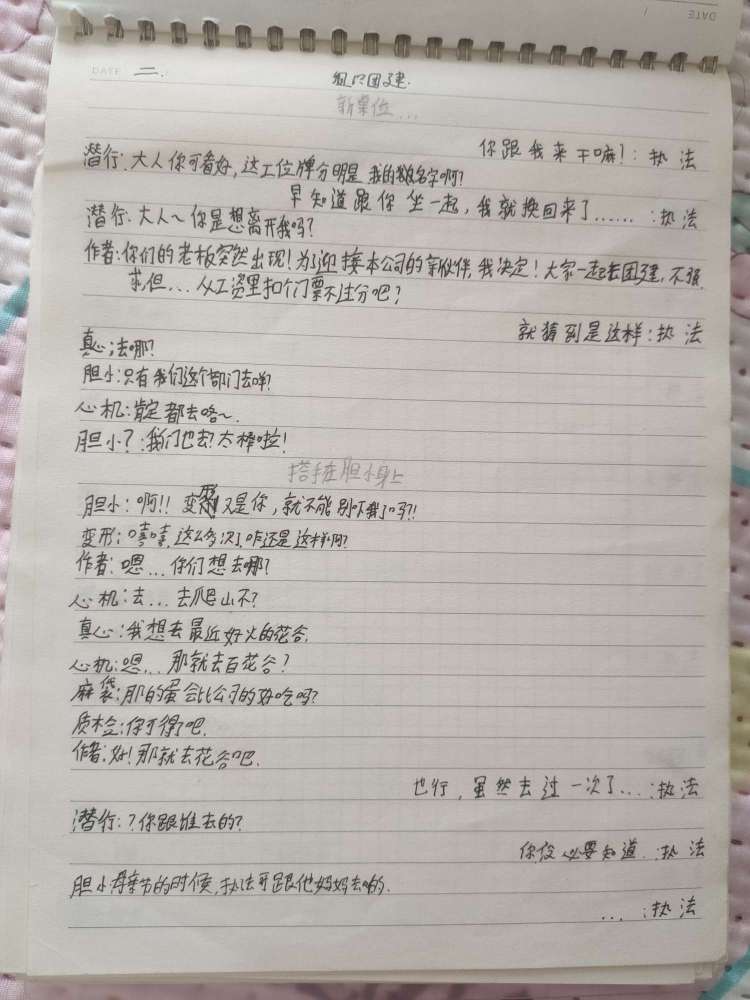 DATE
DATE 二.
组织团建.
新单位...
你跟我来干嘛!: 执法
潜行: 大人你可看好, 这工位牌分明是我的名字啊?
早知道跟你坐一起, 我就换回来了......: 执法
潜行: 大人~你是想离开我吗?
作者: 你们的老板突然出现! 为了迎接本公司的新伙伴, 我决定! 大家一起去团建, 不强
求, 但... 从工资里扣个门票不过分吧?
就猜到是这样: 执法
真心: 去哪?
胆小: 只有我们这个部门去咩?
心机: 肯定都去咯~.
胆小?: 我们也去? 太棒啦!
搭手在胆小身上
胆小: 啊!! 变形又是你, 就不能别吓我了吗?!!
变形: 嘻嘻, 这么多次了, 咋还是这样啊?
作者: 嗯... 你们想去哪?
心机: 去... 去爬山不?
真心: 我想去最近好火的花谷.
心机: 嗯... 那就去百花谷?
麻袋: 那的蛋会比公司的好吃吗?
质检: 你可得了吧.
作者: 好! 那就去花谷吧.
也行, 虽然去过一次了...: 执法
潜行: ? 你跟谁去的?
你没必要知道.: 执法
胆小: 母亲节的时候, 执法哥跟他妈妈去的.
...: 执法